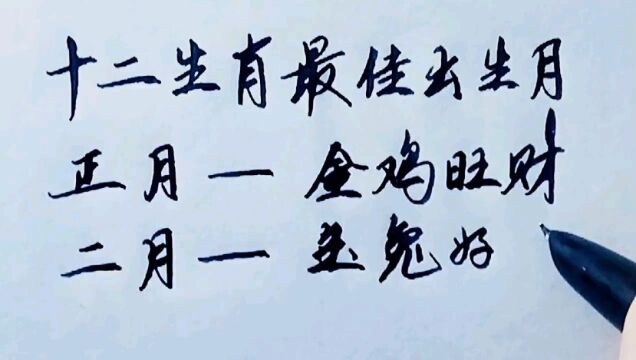 十二生肖最佳出生月
正月一金鸡旺财
二月一玉兔好